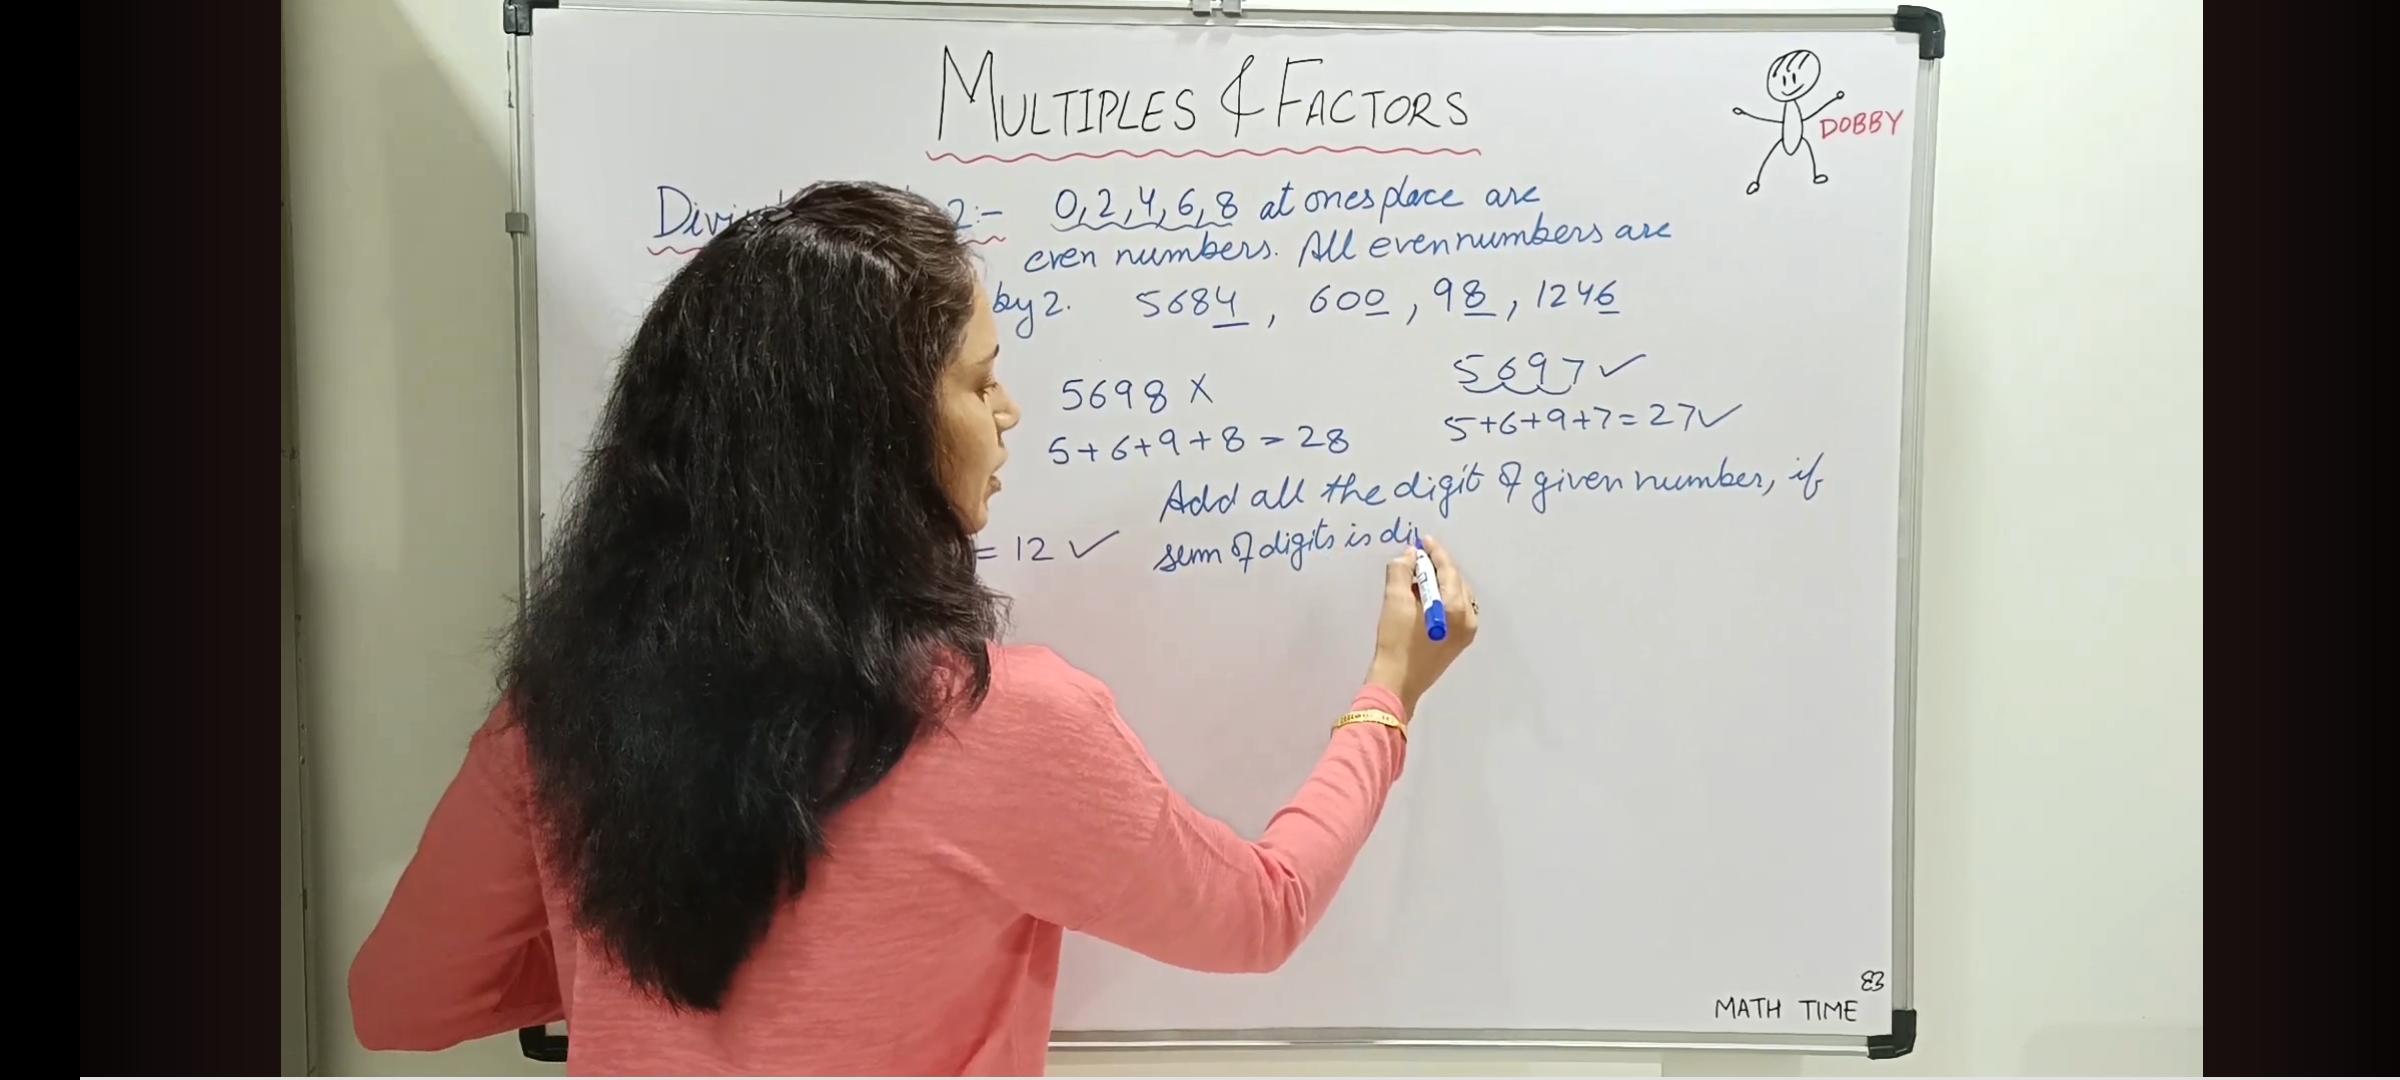 MULTIPLES & FACTORS
DOBBY
2:- 0, 2, 4, 6, 8 at ones place are
even numbers. All even numbers are
by 2. 5684, 600, 98, 1246
5698 X 5697 ✓
5+6+9+8 = 28 5+6+9+7=27✓
Add all the digit of given number, if
= 12 ✓ sum of digits is di
83
MATH TIME